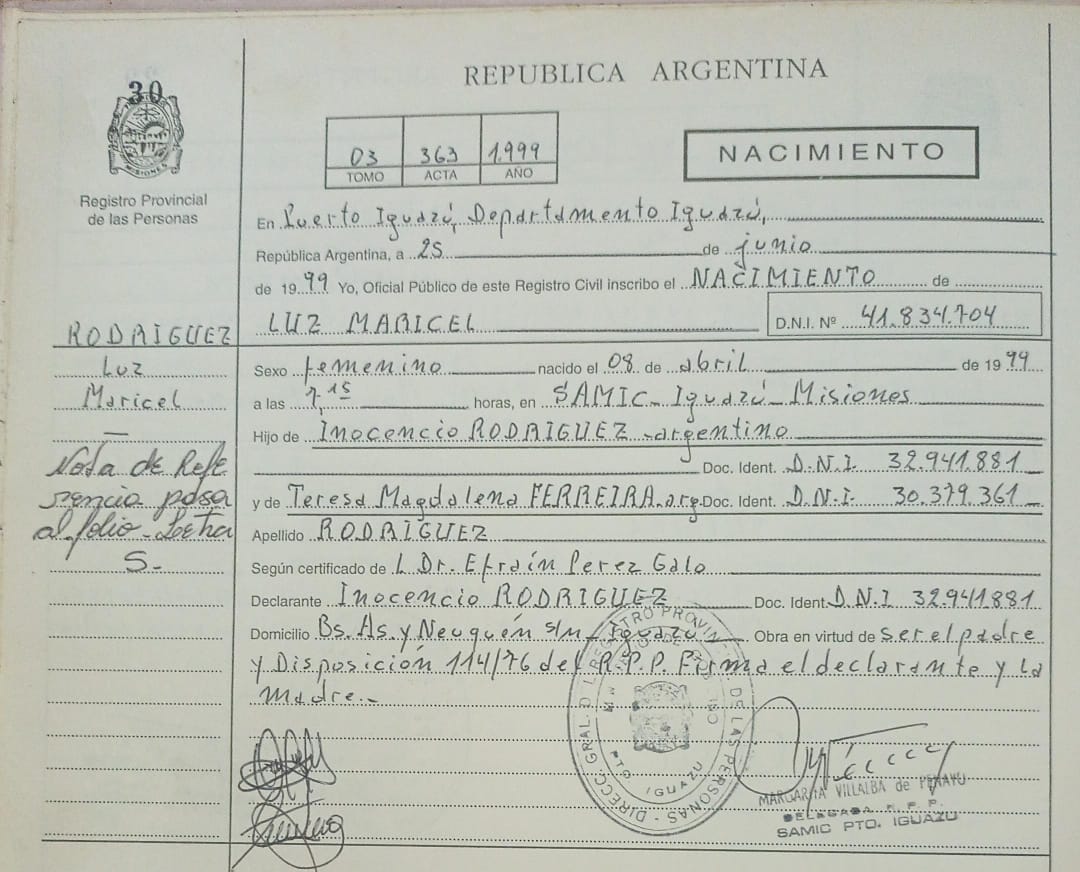 REPUBLICA ARGENTINA
30
MISIONES
Registro Provincial
de las Personas
03 363 1.999
TOMO ACTA AÑO
NACIMIENTO
En Puerto Iguazú, Departamento Iguazú,
República Argentina, a 25 de junio
de 1999 Yo, Oficial Público de este Registro Civil inscribo el NACIMIENTO de
LUZ MARICEL D.N.I. Nº 41.834.704
RODRIGUEZ
Luz
Maricel
Nota de Refe
rencia pasa
al folio - Letra
S.-
Sexo femenino nacido el 08 de abril de 1999
a las 7,15 horas, en SAMIC - Iguazú - Misiones
Hijo de Inocencio RODRIGUEZ - argentino
Doc. Ident. D.N.I. 32.941.881
y de Teresa Magdalena FERREIRA.arg. Doc. Ident. D.N.I. 30.379.361
Apellido RODRIGUEZ
Según certificado de Dr. Efraín Perez Galo
Declarante Inocencio RODRIGUEZ Doc. Ident. D.N.I 32.941.881
Domicilio Bs. As. y Neuquén s/n - Iguazú Obra en virtud de ser el padre
y Disposición 114/76 del R.P.P. Firma el declarante y la
madre.-
DIRECC. GRAL. REGISTRO PROVIN DE LAS PERSONAS
PTO. IGUAZU
MARGARITA VILLALBA de PENAYO
DELEGADA R. P. P.
SAMIC PTO. IGUAZU